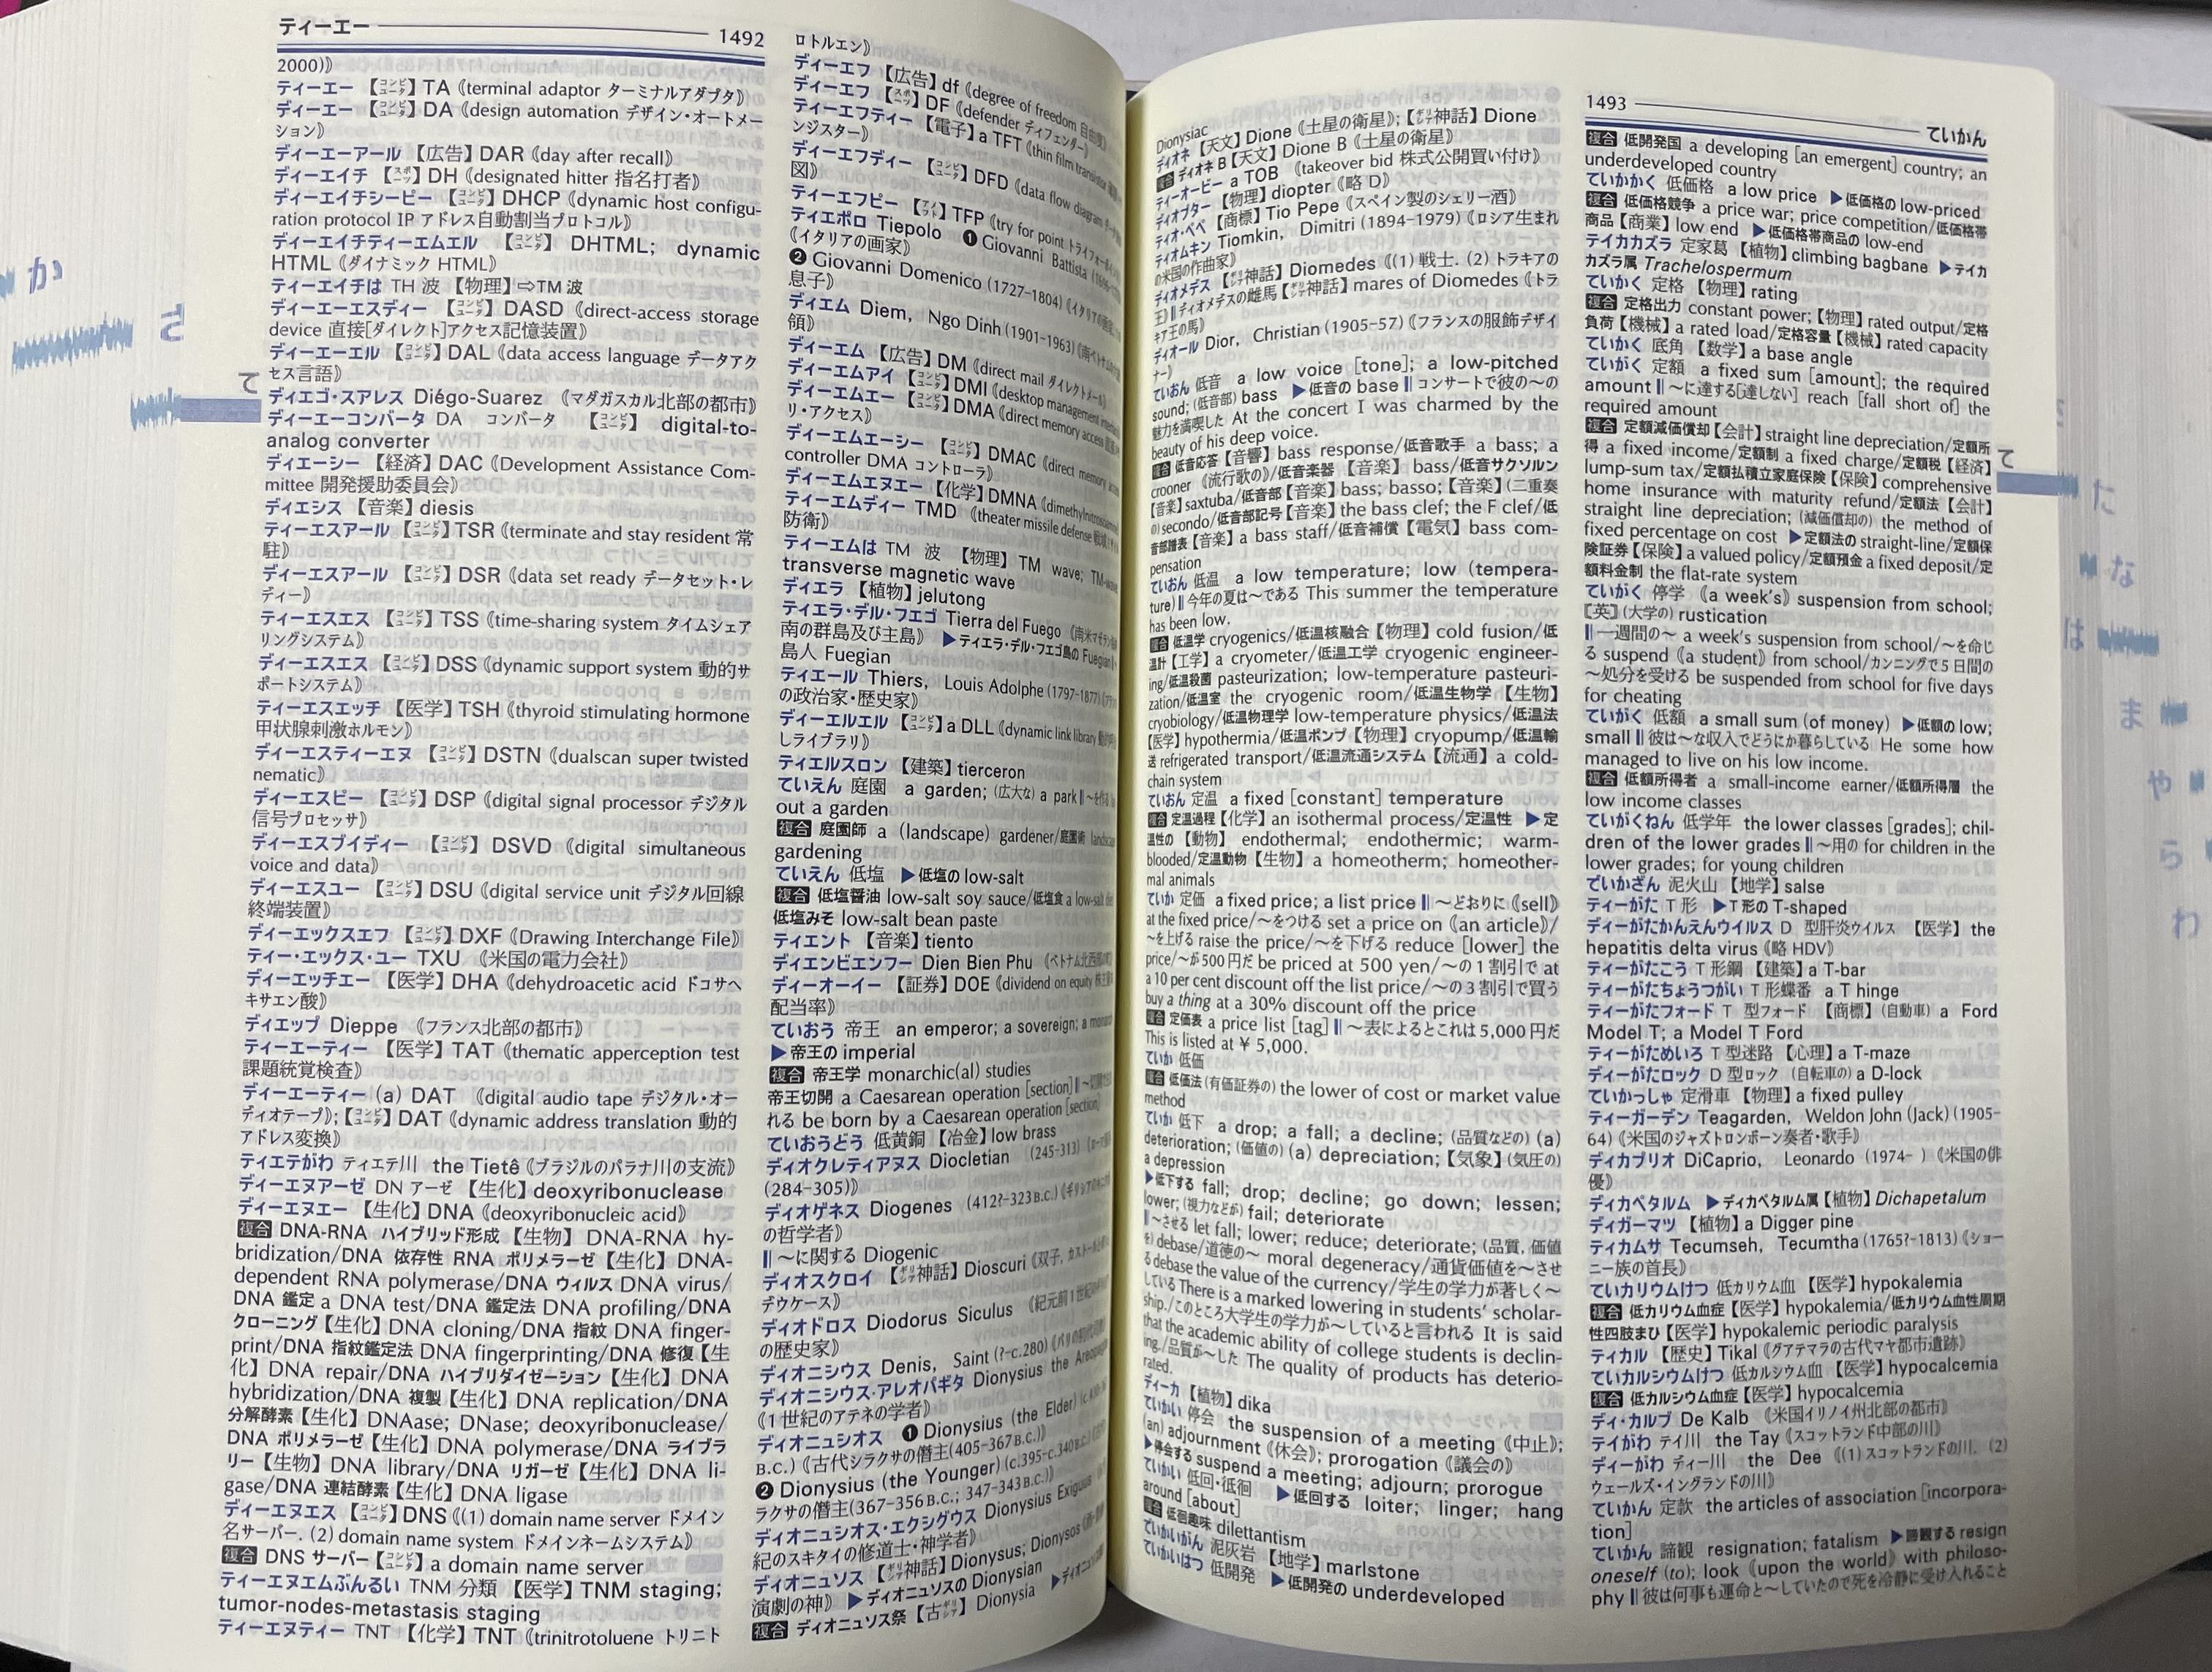 ティーエー
1492
2000)》
ティーエー 【コンピュータ】TA《terminal adaptor ターミナルアダプタ》
ティーエー 【コンピュータ】DA《design automation デザイン・オートメー
ション》
ディーエーアール 【広告】DAR《day after recall》
ディーエイチ 【スポーツ】DH《designated hitter 指名打者》
ディーエイチシーピー 【コンピュータ】DHCP《dynamic host configu-
ration protocol IP アドレス自動割当プロトコル》
ディーエイチティーエムエル 【コンピュータ】 DHTML; dynamic
HTML《ダイナミック HTML》
ティーエイチは TH 波 【物理】⇨TM 波
ディーエーエスディー 【コンピュータ】DASD《direct-access storage
device 直接[ダイレクト]アクセス記憶装置》
ディーエーエル 【コンピュータ】DAL《data access language データアク
セス言語》
ディエゴ・スアレス Diégo-Suarez 《マダガスカル北部の都市》
ディーエーコンバータ DA コンバータ 【コンピュータ】 digital-to-
analog converter
ディエーシー 【経済】DAC《Development Assistance Com-
mittee 開発援助委員会》
ディエシス 【音楽】diesis
ティーエスアール 【コンピュータ】TSR《terminate and stay resident 常
駐》
ディーエスアール 【コンピュータ】DSR《data set ready データセット・レ
ディー》
ティーエスエス 【コンピュータ】TSS《time-sharing system タイムシェア
リングシステム》
ディーエスエス 【コンピュータ】DSS《dynamic support system 動的サ
ポートシステム》
ティーエスエッチ 【医学】TSH《thyroid stimulating hormone
甲状腺刺激ホルモン》
ディーエスティーエヌ 【コンピュータ】DSTN《dualscan super twisted
nematic》
ディーエスピー 【コンピュータ】DSP《digital signal processor デジタル
信号プロセッサ》
ディーエスブイディー 【コンピュータ】 DSVD 《digital simultaneous
voice and data》
ディーエスユー 【コンピュータ】DSU《digital service unit デジタル回線
終端装置》
ディーエックスエフ 【コンピュータ】DXF《Drawing Interchange File》
ティー・エックス・ユー TXU 《米国の電力会社》
ディーエッチエー 【医学】DHA《dehydroacetic acid ドコサヘ
キサエン酸》
ディエップ Dieppe 《フランス北部の都市》
ティーエーティー 【医学】TAT《thematic apperception test
課題統覚検査》
ディーエーティー (a) DAT 《digital audio tape デジタル・オー
ディオテープ》;【コンピュータ】DAT《dynamic address translation 動的
アドレス変換》
ティエテがわ ティエテ川 the Tietê《ブラジルのパラナ川の支流》
ディーエヌアーゼ DN アーゼ 【生化】deoxyribonuclease
ディーエヌエー 【生化】DNA《deoxyribonucleic acid》
複合 DNA-RNA ハイブリッド形成【生物】 DNA-RNA hy-
bridization/DNA 依存性 RNA ポリメラーゼ【生化】DNA-
dependent RNA polymerase/DNA ウィルス DNA virus/
DNA 鑑定 a DNA test/DNA 鑑定法 DNA profiling/DNA
クローニング【生化】DNA cloning/DNA 指紋 DNA finger-
print/DNA 指紋鑑定法 DNA fingerprinting/DNA 修復【生
化】DNA repair/DNA ハイブリダイゼーション【生化】DNA
hybridization/DNA 複製【生化】DNA replication/DNA
分解酵素【生化】DNAase; DNase; deoxyribonuclease/
DNA ポリメラーゼ【生化】DNA polymerase/DNA ライブラ
リー【生物】DNA library/DNA リガーゼ【生化】DNA li-
gase/DNA 連結酵素【生化】DNA ligase
ディーエヌエス 【コンピュータ】DNS《(1) domain name server ドメイン
名サーバー. (2) domain name system ドメインネームシステム》
複合 DNS サーバー【コンピュータ】a domain name server
ティーエヌエムぶんるい TNM 分類 【医学】TNM staging;
tumor-nodes-metastasis staging
ティーエヌティー TNT 【化学】TNT《trinitrotoluene トリニト
ロトルエン》
ディーエフ 【広告】df《degree of freedom 自由度》
ディーエフ 【スポーツ】DF《defender ディフェンダー》
ティーエフティー 【電子】a TFT《thin film transistor
ンジスター》
ディーエフディー 【コンピュータ】DFD《data flow diagram
図》
ティーエフピー 【アメフト】TFP《try for point トライフォーポイント
ティエポロ Tiepolo ❶ Giovanni Battista
《イタリアの画家》
❷ Giovanni Domenico (1727-1804)《イタリアの
息子》
ディエム Diem, Ngo Dinh (1901-1963)
領》
ディーエム 【広告】DM《direct mail ダイレクトメール》
ディーエムアイ 【コンピュータ】DMI《desktop management
ディーエムエー 【コンピュータ】DMA《direct memory access
リ・アクセス》
ディーエムエーシー 【コンピュータ】DMAC《direct memory
controller DMA コントローラ》
ディーエムエヌエー 【化学】DMNA《dimethylnitrosamine
ティーエムディー TMD 《theater missile defense
防衛》
ティーエムは TM 波 【物理】TM wave;
transverse magnetic wave
ディエラ 【植物】jelutong
ティエラ・デル・フエゴ Tierra del Fuego《南米
南の群島及び主島》 ▶ティエラ・デル・フエゴ島の Fuegian
島人 Fuegian
ティエール Thiers, Louis Adolphe (1797-1877)
の政治家・歴史家》
ディーエルエル 【コンピュータ】a DLL《dynamic link library
しライブラリ》
ティエルスロン 【建築】tierceron
ていえん 庭園 a garden; (広大な) a park ‖
out a garden
複合 庭園師 a (landscape) gardener/庭園術 landscape
gardening
ていえん 低塩 ▶低塩の low-salt
複合 低塩醤油 low-salt soy sauce/低塩食 a low-salt
低塩みそ low-salt bean paste
ティエント 【音楽】tiento
ディエンビエンフー Dien Bien Phu 《ベトナム北西部の町》
ディーオーイー 【証券】DOE《dividend on equity
配当率》
ていおう 帝王 an emperor; a sovereign;
▶帝王の imperial
複合 帝王学 monarchic(al) studies
帝王切開 a Caesarean operation [section] ‖
れる be born by a Caesarean operation [section]
ていおうどう 低黄銅 【冶金】low brass
ディオクレティアヌス Diocletian (245-313)
(284-305)》
ディオゲネス Diogenes (412?-323 B.C.)
の哲学者》
‖ ～に関する Diogenic
ディオスクロイ 【ギリシア神話】Dioscuri
デウケース》
ディオドロス Diodorus Siculus 《紀元前1世紀
の歴史家》
ディオニシウス Denis, Saint (?-c.280)
ディオニシウス・アレオパギタ Dionysius the
《1 世紀のアテネの学者》
ディオニュシオス ❶ Dionysius (the Elder)
B.C.)《古代シラクサの僭主(405-367 B.C.)》
❷ Dionysius (the Younger) (c.395-c.340 B.C.)
ラクサの僭主(367-356 B.C.; 347-343 B.C.)》
ディオニュシオス・エクシグウス Dionysius Exiguus
紀のスキタイの修道士・神学者》
ディオニュソス 【ギリシア神話】Dionysus; Dionysos
演劇の神》 ▶ディオニュソスの Dionysian
複合 ディオニュソス祭【古ギリシア】 Dionysia
Dionysiac
ディオネ 【天文】Dione《土星の衛星》;【ギリシア神話】Dione
複合 ディオネ B【天文】Dione B《土星の衛星》
ティーオービー a TOB 《takeover bid 株式公開買い付け》
ディオプター 【物理】diopter《略 D》
ティオ・ペペ 【商標】Tio Pepe《スペイン製のシェリー酒》
ティオムキン Tiomkin, Dimitri (1894-1979)《ロシア生まれ
の米国の作曲家》
ディオメデス 【ギリシア神話】Diomedes《(1) 戦士. (2) トラキアの
王》‖ ディオメデスの雌馬【ギリシア神話】mares of Diomedes《トラ
キア王の馬》
ディオール Dior, Christian (1905-57)《フランスの服飾デザイ
ナー》
ていおん 低音 a low voice [tone]; a low-pitched
sound; (低音部) bass ▶低音の base ‖ コンサートで彼の～の
魅力を満喫した At the concert I was charmed by the
beauty of his deep voice.
複合 低音応答【音響】bass response/低音歌手 a bass; a
crooner 《流行歌の》/低音楽器 【音楽】 bass/低音サクソルン
【音楽】saxtuba/低音部【音楽】bass; basso;【音楽】(二重奏
の) secondo/低音部記号【音楽】the bass clef; the F clef/低
音部譜表【音楽】a bass staff/低音補償【電気】bass com-
pensation
ていおん 低温 a low temperature; low (tempera-
ture) ‖ 今年の夏は～である This summer the temperature
has been low.
複合 低温学 cryogenics/低温核融合【物理】cold fusion/低
温計【工学】a cryometer/低温工学 cryogenic engineer-
ing/低温殺菌 pasteurization; low-temperature pasteuri-
zation/低温室 the cryogenic room/低温生物学【生物】
cryobiology/低温物理学 low-temperature physics/低温法
【医学】hypothermia/低温ポンプ【物理】cryopump/低温輸
送 refrigerated transport/低温流通システム【流通】a cold-
chain system
ていおん 定温 a fixed [constant] temperature
複合 定温過程【化学】an isothermal process/定温性 ▶定
温性の【動物】 endothermal; endothermic; warm-
blooded/定温動物【生物】a homeotherm; homeother-
mal animals
ていか 定価 a fixed price; a list price ‖ ～どおりに《sell》
at the fixed price/～をつける set a price on《an article》/
～を上げる raise the price/～を下げる reduce [lower] the
price/～が500円だ be priced at 500 yen/～の1割引で at
a 10 per cent discount off the list price/～の3割引で買う
buy a thing at a 30% discount off the price
複合 定価表 a price list [tag] ‖ ～表によるとこれは5,000円だ
This is listed at ¥ 5,000.
ていか 低価
複合 低価法 (有価証券の) the lower of cost or market value
method
ていか 低下 a drop; a fall; a decline; (品質などの) (a)
deterioration; (価値の) (a) depreciation;【気象】(気圧の)
a depression
▶低下する fall; drop; decline; go down; lessen;
lower; (視力などが) fail; deteriorate
‖ ～させる let fall; lower; reduce; deteriorate; (品質, 価値
を) debase/道徳の～ moral degeneracy/通貨価値を～させ
る debase the value of the currency/学生の学力が著しく～
している There is a marked lowering in students' scholar-
ship./このところ大学生の学力が～していると言われる It is said
that the academic ability of college students is declin-
ing./品質が～した The quality of products has deterio-
rated.
ディーカ 【植物】dika
ていかい 停会 the suspension of a meeting《中止》;
(an) adjournment《休会》; prorogation《議会の》
▶停会する suspend a meeting; adjourn; prorogue
ていかい 低回・低徊 ▶低回する loiter; linger; hang
around [about]
複合 低徊趣味 dilettantism
でいかいがん 泥灰岩 【地学】marlstone
ていかいはつ 低開発 ▶低開発の underdeveloped
1493
ていかん
複合 低開発国 a developing [an emergent] country; an
underdeveloped country
ていかかく 低価格 a low price ▶低価格の low-priced
複合 低価格競争 a price war; price competition/低価格帯
商品【商業】low end ▶低価格帯商品の low-end
テイカカズラ 定家葛 【植物】climbing bagbane ▶テイカ
カズラ属 Trachelospermum
ていかく 定格 【物理】rating
複合 定格出力 constant power;【物理】rated output/定格
負荷【機械】a rated load/定格容量【機械】rated capacity
ていかく 底角 【数学】a base angle
ていがく 定額 a fixed sum [amount]; the required
amount ‖ ～に達する[達しない] reach [fall short of] the
required amount
複合 定額減価償却【会計】straight line depreciation/定額所
得 a fixed income/定額制 a fixed charge/定額税【経済】
lump-sum tax/定額払積立家庭保険【保険】comprehensive
home insurance with maturity refund/定額法【会計】
straight line depreciation; (減価償却の) the method of
fixed percentage on cost ▶定額法の straight-line/定額保
険証券【保険】a valued policy/定額預金 a fixed deposit/定
額料金制 the flat-rate system
ていがく 停学 《a week's》suspension from school;
《英》(大学の) rustication
‖ 一週間の～ a week's suspension from school/～を命じ
る suspend《a student》from school/カンニングで5日間の
～処分を受ける be suspended from school for five days
for cheating
ていがく 低額 a small sum (of money) ▶低額の low;
small ‖ 彼は～な収入でどうにか暮らしている He some how
managed to live on his low income.
複合 低額所得者 a small-income earner/低額所得層 the
low income classes
ていがくねん 低学年 the lower classes [grades]; chil-
dren of the lower grades ‖ ～用の for children in the
lower grades; for young children
でいかざん 泥火山 【地学】salse
ティーがた T 形 ▶T 形の T-shaped
ディーがたかんえんウイルス D 型肝炎ウイルス 【医学】the
hepatitis delta virus《略 HDV》
ティーがたこう T 形鋼 【建築】a T-bar
ティーがたちょうつがい T 形蝶番 a T hinge
ティーがたフォード T 型フォード 【商標】(自動車) a Ford
Model T; a Model T Ford
ティーがためいろ T 型迷路 【心理】a T-maze
ディーがたロック D 型ロック (自転車の) a D-lock
ていかっしゃ 定滑車 【物理】a fixed pulley
ティーガーデン Teagarden, Weldon John (Jack) (1905-
64)《米国のジャズトロンボーン奏者・歌手》
ディカプリオ DiCaprio, Leonardo (1974- )《米国の俳
優》
ディカペタルム ▶ディカペタルム属【植物】Dichapetalum
ディガーマツ 【植物】a Digger pine
ティカムサ Tecumseh, Tecumtha (1765?-1813)《ショー
ニー族の首長》
ていカリウムけつ 低カリウム血 【医学】hypokalemia
複合 低カリウム血症【医学】hypokalemia/低カリウム血性周期
性四肢まひ【医学】hypokalemic periodic paralysis
ティカル 【歴史】Tikal《グアテマラの古代マヤ都市遺跡》
ていカルシウムけつ 低カルシウム血 【医学】hypocalcemia
複合 低カルシウム血症【医学】hypocalcemia
ディ・カルブ De Kalb 《米国イリノイ州北部の都市》
テイがわ テイ川 the Tay《スコットランド中部の川》
ディーがわ ディー川 the Dee 《(1) スコットランドの川. (2)
ウェールズ・イングランドの川》
ていかん 定款 the articles of association [incorpora-
tion]
ていかん 諦観 resignation; fatalism ▶諦観する resign
oneself (to); look《upon the world》with philoso-
phy ‖ 彼は何事も運命と～していたので死を冷静に受け入れること
か
さ
て
て
た
な
は
ま
や
ら
わ